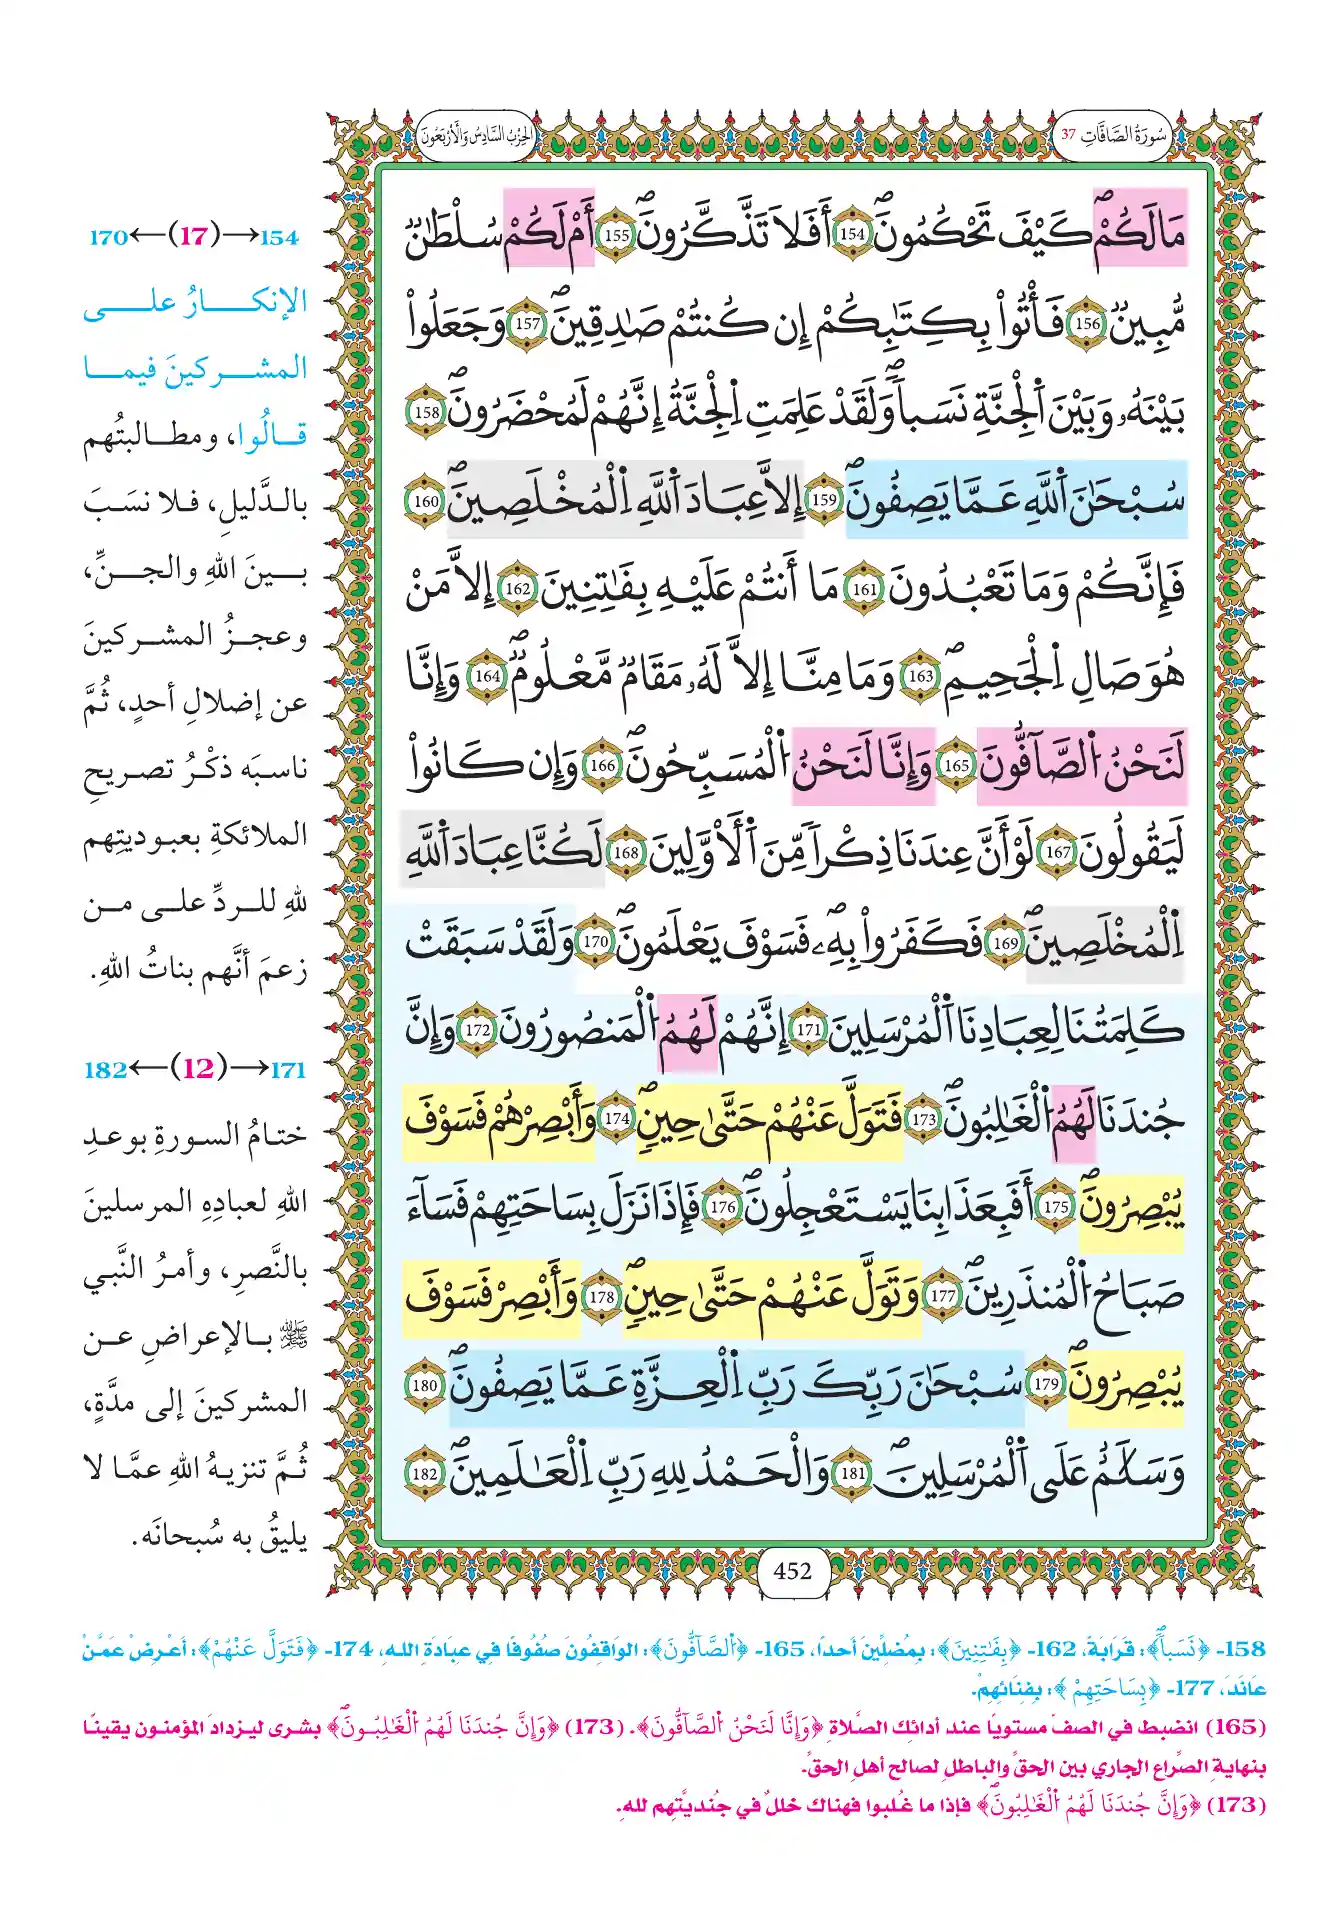 سُورَةُ الصَّافَّاتِ 37
الحِزْبُ السَّادِسُ وَالأَرْبَعُونَ
مَا لَكُمْۖ كَيْفَ تَحْكُمُونَۖ 154 أَفَلَا تَذَّكَّرُونَۖ 155 أَمْ لَكُمْ سُلْطَٰنٌ
مُّبِينٌۖ 156 فَأْتُواْ بِكِتَٰبِكُمْ إِن كُنتُمْ صَٰدِقِينَۖ 157 وَجَعَلُواْ
بَيْنَهُۥ وَبَيْنَ اَ۬لْجِنَّةِ نَسَباٗۖ وَلَقَدْ عَلِمَتِ اِ۬لْجِنَّةُ إِنَّهُمْ لَمُحْضَرُونَۖ 158
سُبْحَٰنَ اَ۬للَّهِ عَمَّا يَصِفُونَۖ 159 إِلاَّ عِبَادَ اَ۬للَّهِ اِ۬لْمُخْلَصِينَۖ 160
فَإِنَّكُمْ وَمَا تَعْبُدُونَ 161 مَا أَنتُمْ عَلَيْهِ بِفَٰتِنِينَ 162 إِلاَّ مَنْ
هُوَ صَالِ اِ۬لْجَحِيمِۖ 163 وَمَا مِنَّا إِلاَّ لَهُۥ مَقَامٌ مَّعْلُومٌۖ 164 وَإِنَّا
لَنَحْنُ اُ۬لصَّآفُّونَ 165 وَإِنَّا لَنَحْنُ اُ۬لْمُسَبِّحُونَۖ 166 وَإِن كَانُواْ
لَيَقُولُونَ 167 لَوْ أَنَّ عِندَنَا ذِكْراٗ مِّنَ اَ۬لْأَوَّلِينَ 168 لَكُنَّا عِبَادَ اَ۬للَّهِ
اِ۬لْمُخْلَصِينَۖ 169 فَكَفَرُواْ بِهِۦۖ فَسَوْفَ يَعْلَمُونَۖ 170 وَلَقَدْ سَبَقَتْ
كَلِمَتُنَا لِعِبَادِنَا اَ۬لْمُرْسَلِينَ 171 إِنَّهُمْ لَهُمُ اُ۬لْمَنصُورُونَ 172 وَإِنَّ
جُندَنَا لَهُمُ اُ۬لْغَٰلِبُونَۖ 173 فَتَوَلَّ عَنْهُمْ حَتَّىٰ حِينٖۖ 174 وَأَبْصِرْهُمْ فَسَوْفَ
يُبْصِرُونَۖ 175 أَفَبِعَذَابِنَا يَسْتَعْجِلُونَۖ 176 فَإِذَا نَزَلَ بِسَاحَتِهِمْ فَسَآءَ
صَبَاحُ اُ۬لْمُنذَرِينَۖ 177 وَتَوَلَّ عَنْهُمْ حَتَّىٰ حِينٖۖ 178 وَأَبْصِرْ فَسَوْفَ
يُبْصِرُونَۖ 179 سُبْحَٰنَ رَبِّكَ رَبِّ اِ۬لْعِزَّةِ عَمَّا يَصِفُونَۖ 180
وَسَلَٰمٌ عَلَى اَ۬لْمُرْسَلِينَۖ 181 وَالْحَمْدُ لِلهِ رَبِّ اِ۬لْعَٰلَمِينَۖ 182
452
170←(17)→154
الإنكارُ على
المشركينَ فيما
قالُوا، ومطالبتُهم
بالدَّليلِ، فلا نسَبَ
بينَ اللهِ والجنِّ،
وعجزُ المشركينَ
عن إضلالِ أحدٍ، ثُمَّ
ناسبَه ذكْرُ تصريحِ
الملائكةِ بعبوديتِهم
للهِ للردِّ على من
زعمَ أنَّهم بناتُ اللهِ.
182←(12)→171
ختامُ السورةِ بوعدِ
اللهِ لعبادِهِ المرسلينَ
بالنَّصرِ، وأمرُ النَّبي
ﷺ بالإعراضِ عن
المشركينَ إلى مدَّةٍ،
ثُمَّ تنزيهُ اللهِ عمَّا لا
يليقُ به سُبحانَه.
158- ﴿نَسَباٗۖ﴾: قَرَابَةً، 162- ﴿بِفَٰتِنِينَ﴾: بِمُضِلِّينَ أَحداً، 165- ﴿اُ۬لصَّآفُّونَ﴾: الوَاقِفُونَ صُفُوفًا فِي عِبَادَةِ اللهِ، 174- ﴿فَتَوَلَّ عَنْهُمْ﴾: أَعْرِضْ عَمَّنْ
عَانَدَ، 177- ﴿بِسَاحَتِهِمْ﴾: بِفِنَائِهِمْ.
(165) انضبط في الصف مستوياً عند أدائك الصَّلاة ﴿وَإِنَّا لَنَحْنُ اُ۬لصَّآفُّونَ﴾. (173) ﴿وَإِنَّ جُندَنَا لَهُمُ اُ۬لْغَٰلِبُونَۖ﴾ بشرى ليزدادَ المؤمنون يقينًا
بنهايةِ الصِّراع الجاري بين الحقِّ والباطلِ لصالح أهلِ الحقِّ.
(173) ﴿وَإِنَّ جُندَنَا لَهُمُ اُ۬لْغَٰلِبُونَۖ﴾ فإذا ما غُلبوا فهناك خللٌ في جُنديَّتِهم للهِ.